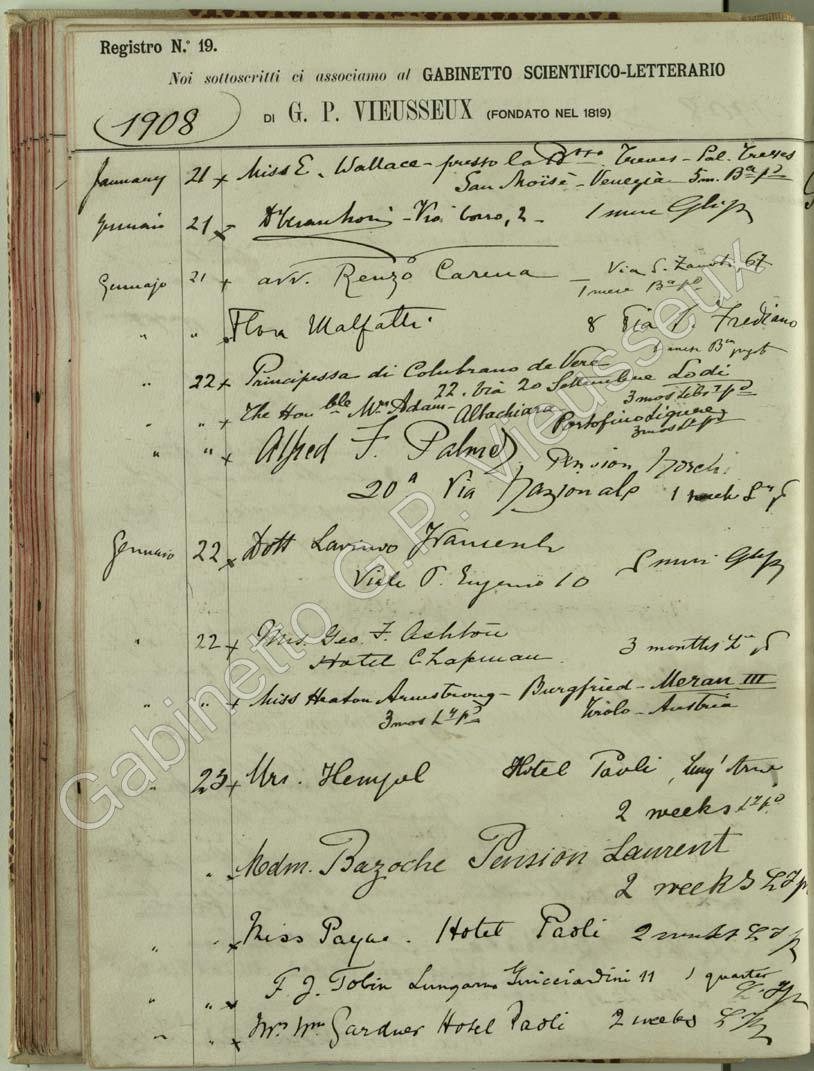 Registro N.° 19.
Noi sottoscritti ci associamo al GABINETTO SCIENTIFICO-LETTERARIO
DI G. P. VIEUSSEUX (FONDATO NEL 1819)
1908
January 21 x Miss E. Wallace - presso la Bnne Treves - Pal. Treves
San Moïsè - Venezia 5m. Ba pd
Gennaio 21 x - Via 2 -
Gennajo 21 x avv. Renzo Carena Via S. Zanobi 67
1 mese Ba pd
" " Flora Malfatti 8 Via S. Frediano
1 mese
" 22 x Principessa di Colubrano de Vera
22. Via 20 Settembre Lodi
3 mos pd
" " x The Honble Mrs Adam - Altachiara Portofino Ligure
3 mos pd
" " x Alfred F. Palmer, Pension
20A Via Nazionale 1 week
Gennaio 22 x Dott
Viale P. Eugenio 10
" 22 x Mrs. Geo. F. Ashton
Hotel Chapman 3 months
" " x Miss Heaton Armstrong - Burgfried - Meran III
3 mos pd Tirolo - Austria
" 23 x Mrs. Hempel Hotel Paoli, Lung' Arno
2 weeks pd
" Mdm. Bazoche Pension Laurent
2 weeks
" " x Miss Payne. Hotel Paoli 2 weeks
" " x F. J. Tobin Lungarno Guicciardini 11 1 quarter
" " x Mrs Wm Gardner Hotel Paoli 2 weeks
Gabinetto G.P. Vieusseux